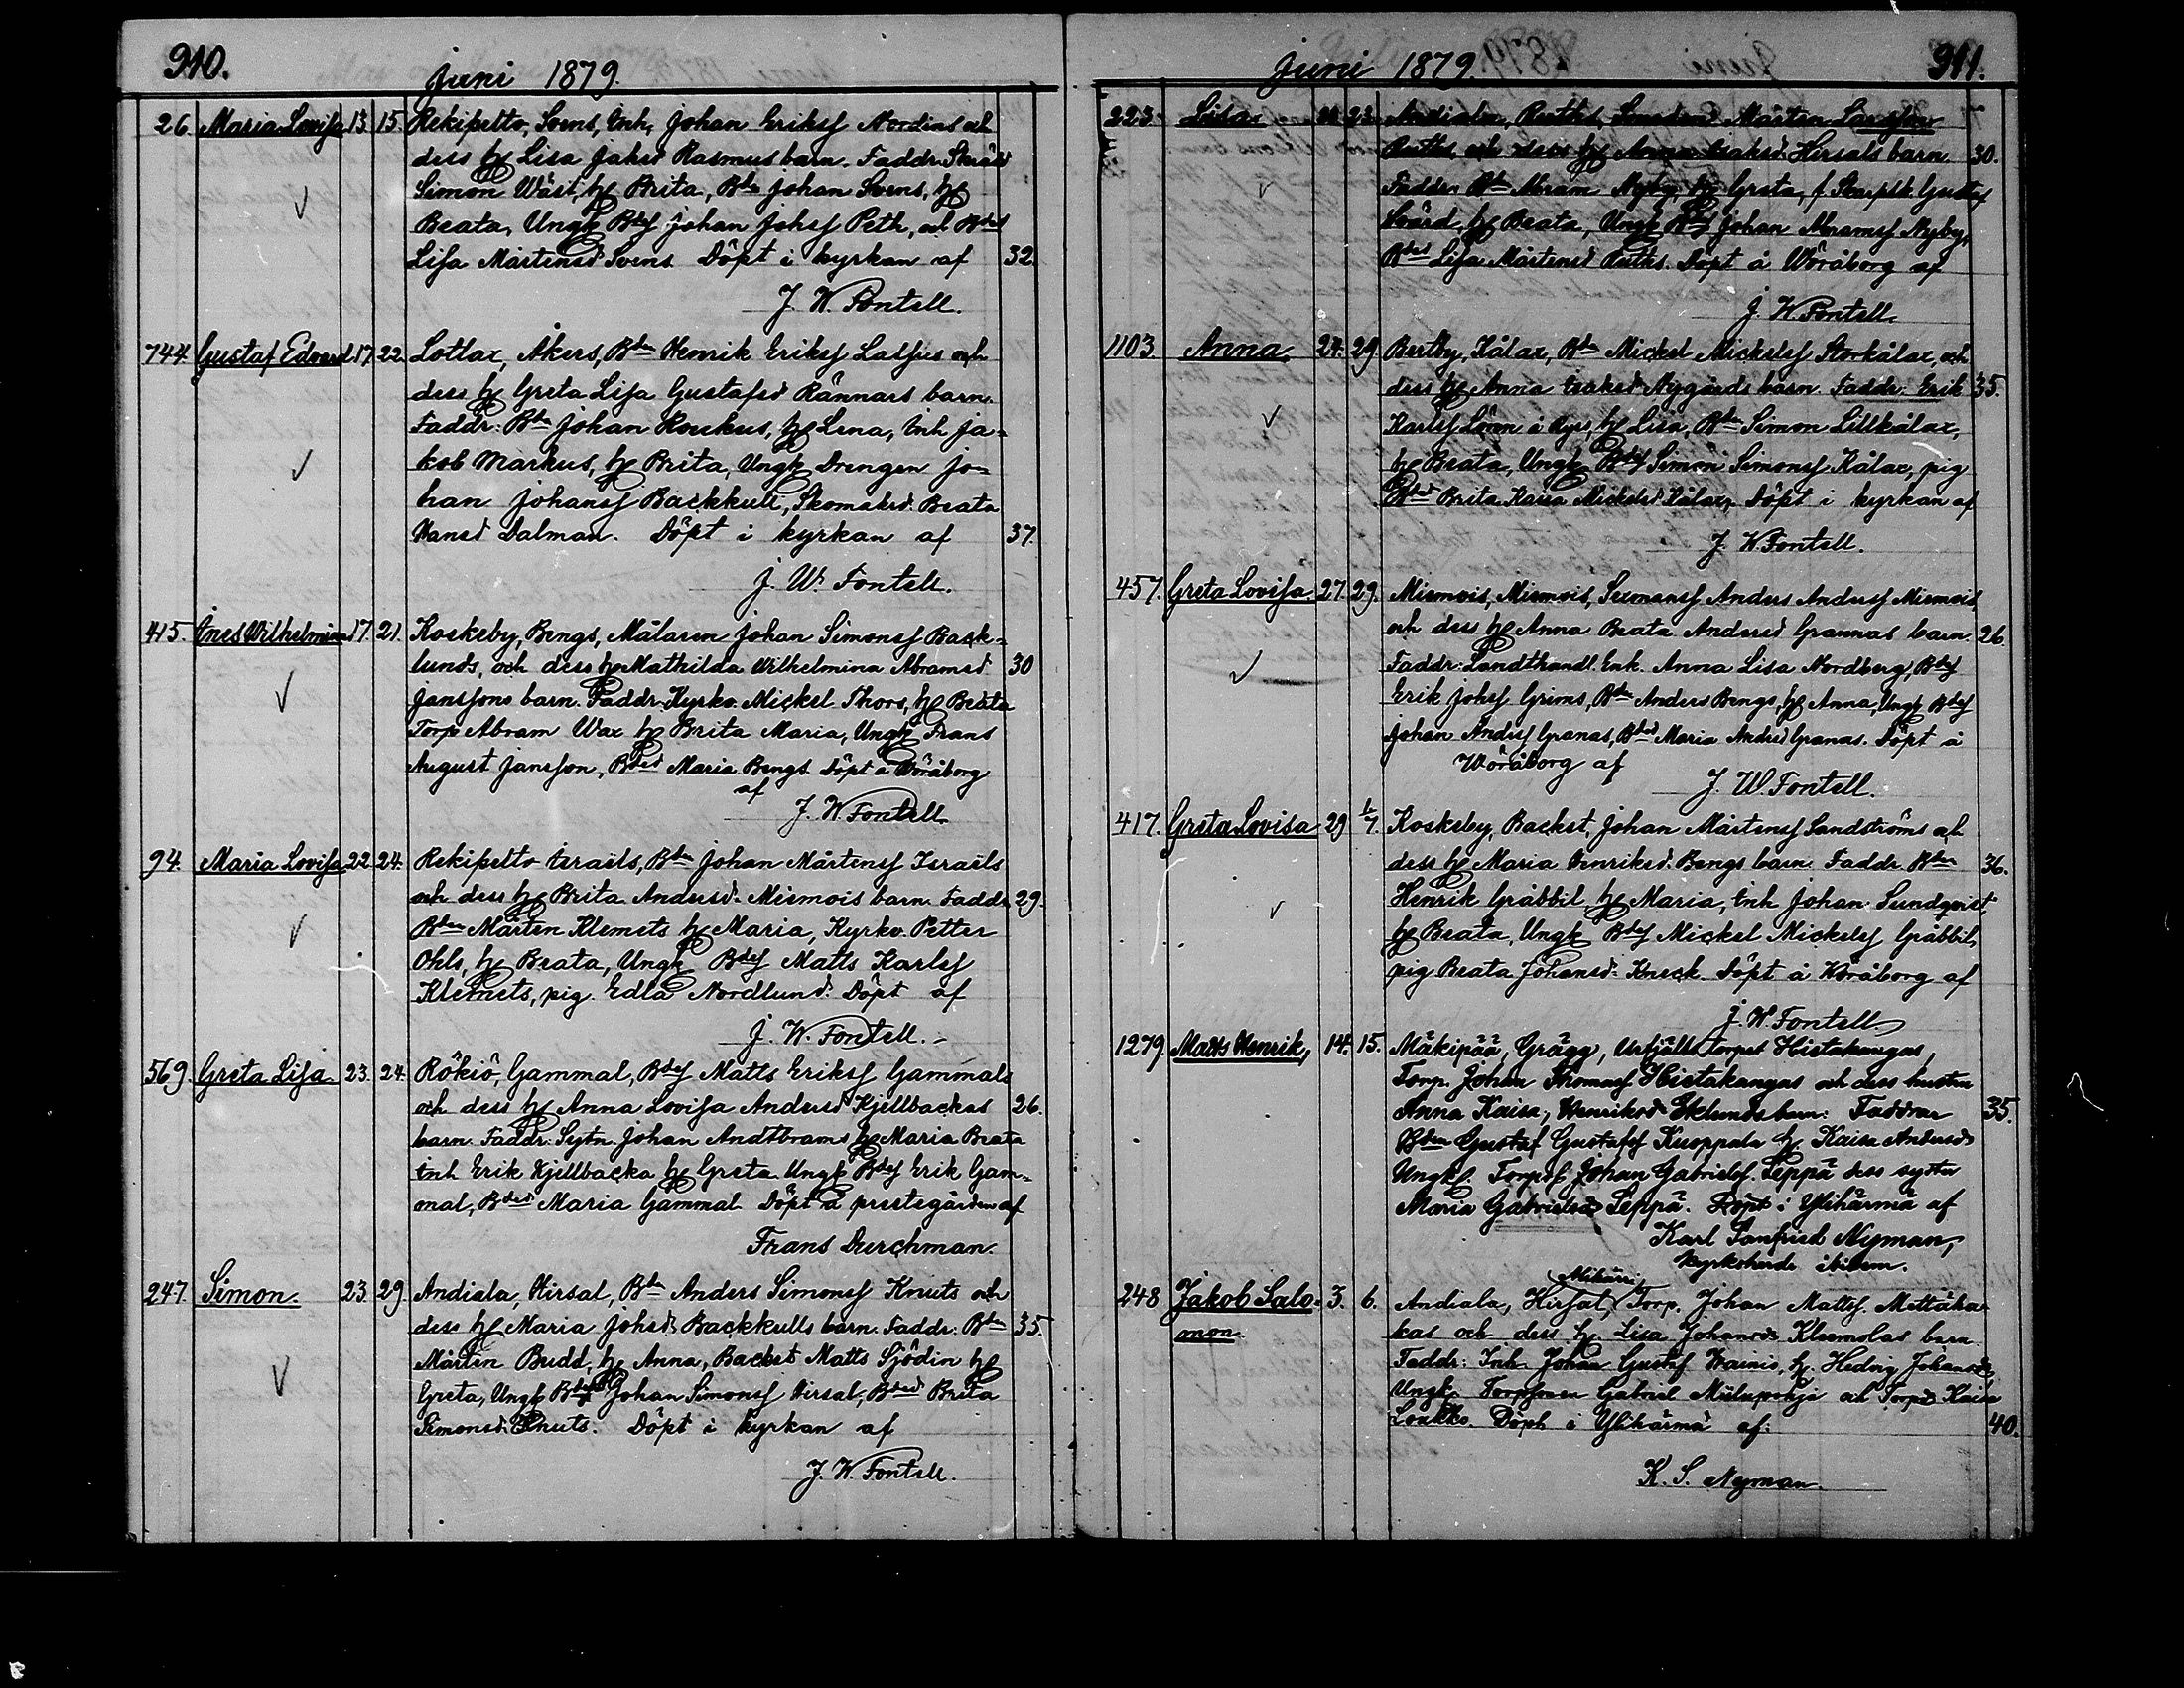 910.
Juni 1879.
26 Maria Lovisa 13. 15. Rekipelto, Svens, Inh, Johan Eriksf Nordins och
dess h. Lisa Jakd Rasmus barn. Faddr: Skräd
Simon Wäst, h. Brita, Bdn Johan Svens, h.
Beata, Ungk Bdsf Johan Johsf Peth, och Bdsd
Lisa Mårtensd Svens. Döpt i kyrkan af 32.
J. W. Fontell.
744. Gustaf Edvard 17. 22. Lotlax, Åkers, Bdn Henrik Eriksf Lassus och
dess h. Greta Lisa Gustafsd Rännars barn.
Faddr: Bdn Johan Roukus, h. Lena, Inh Ja-
kob Markus, h. Brita, Ungk Drengen Jo-
han Johansf Backkull, Skomaksd. Beata
Hansd Dalman. Döpt i kyrkan af 37.
J. W. Fontell.
415. Ines Wilhelmina 17. 21. Koskeby, Bengs, Målaren Johan Simonsf Back-
lunds, och dess h. Mathilda Wilhelmina Abramsd 30
Janssons barn. Faddr: Kyrkv. Mickel Thors, h. Beata
Torp Abram Wax h. Brita Maria, Ungk Frans
August Jansson, Bdsd Maria Bengs. Döpt å Wöråborg
af
J. W. Fontell.
94. Maria Lovisa 22. 24. Rekipelto Israels, Bdn Johan Mårtensf Israels
och dess h. Brita Andersd. Miemois barn. Faddr 29.
Bdn Mårten Klemets h. Maria, Kyrkv. Petter
Ohls, h. Beata, Ungk Bdsf Matts Karlsf
Klemets, pig. Edla Nordlund. Döpt af
J. W. Fontell.
569. Greta Lisa. 23. 24. Rökiö, Gammal, Bdsf Matts Eriksf Gammals
och dess h. Anna Lovisa Andersd Kjellbackas 26.
barn. Faddr: Sytn. Johan Andtbrams h. Maria Beata
Inh Erik Kjellbacka h. Greta. Ungk Bdsf Erik Gam-
mal, Bdsd Maria Gammal. Döpt å prestegården af
Frans Durchman.
247. Simon. 23. 29. Andiala, Hirsal, Bdn Anders Simonsf Knuts och
dess h. Maria Johsd. Backkulls barn. Faddr: Bdn 35.
Mårten Budd, h. Anna, Backst Matts Sjödin h.
Greta, Ungk Bdsf Johan Simonsf Hirsal, Bdsd Brita
Simonsd. Knuts. Döpt i kyrkan af
J. W. Fontell.
Juni 1879.
911.
223. Lisa. 23. Andiala, Ruths, Mårten Larsson
Ruths, och dess h. Anna Isaksd. Hirsals barn. 30.
Faddr: Bdn Abram Nyby, h. Greta, f. Gustaf
Svärd, h. Beata, Ungk Bdsf Johan Abramsf Nyby,
Bdsd Lisa Mårtensd Ruths. Döpt å Wöråborg af
J. W. Fontell.
1103. Anna. 24. 29. Bertby, Kålax, Bdn Mickel Mickelsf Storkålax, och
dess h. Anna Isaksd. Nygårds barn. Faddr: Erik 35.
Karlsf Lönn i h. Lisa, Bdn Simon Lillkålax,
h. Beata, Ungk Bdsf Simon Simonsf Kålax, pig
Bdsd Brita Kaisa Mickelsd. Kålax, Döpt i kyrkan af
J. W. Fontell.
457. Greta Lovisa. 27. 29. Miemois, Miemois, Sexmansf Anders Andersf Miemois
och dess h. Anna Beata Andersd Grannas barn. 26.
Faddr: Landthandl. Enk. Anna Lisa Nordberg, Bdsf
Erik Johsf Grims, Bdn Anders Bengs, h. Anna, Ungk Bdsf
Johan Andersf Granas, Bdsd Maria Andersd Granas. Döpt å
Wöråborg af
J. W. Fontell.
417. Greta Lovisa 29 1/7. Koskeby, Backst, Johan Mårtensf Sandströms och
dess h. Maria Henriksd. Bengs barn. Faddr. Bdn 36.
Henrik Gråbbil, h. Maria, Inh Johan Sundqvist,
h. Beata, Ungk Bdsf Mickel Mickelsf Gråbbil,
pig Beata Johansd. Kneck. Döpt å Wöråborg af
J. W. Fontell
1279. Matts Henrik, 14. 15. Mäkipää, Grägg, Urfjälls torpet Hietakangas,
Torp. Johan Thomasf Hietakangas och dess hustru
Anna Kaisa, Henriksd Eklunds barn: Faddrar 35.
Bdn Gustaf Gustafsf Kuoppala h. Kaisa Andersd
Ungk. Torpsf. Johan Gabrielsf. Leppä dess syster
Maria Gabrielsd Leppä. Döpt i Ylihärmä af
Karl Sanfried Nyman,
Kyrkoherde ibidem.
248 Jakob Salo- 3. 6. Andiala, Hirsal, Torp. Johan Mattsf. Mettäka-
mon. kas och dess h. Lisa Johansd. Kleemolas barn
Faddr: Inh. Johan Gustaf Wainio, h. Hedvig Johansd,
Ungk. Torpsonen Gabriel och Torpd Kaisa
Loukko. Döpt i Ylihärmä af: 40.
K. S. Nyman.